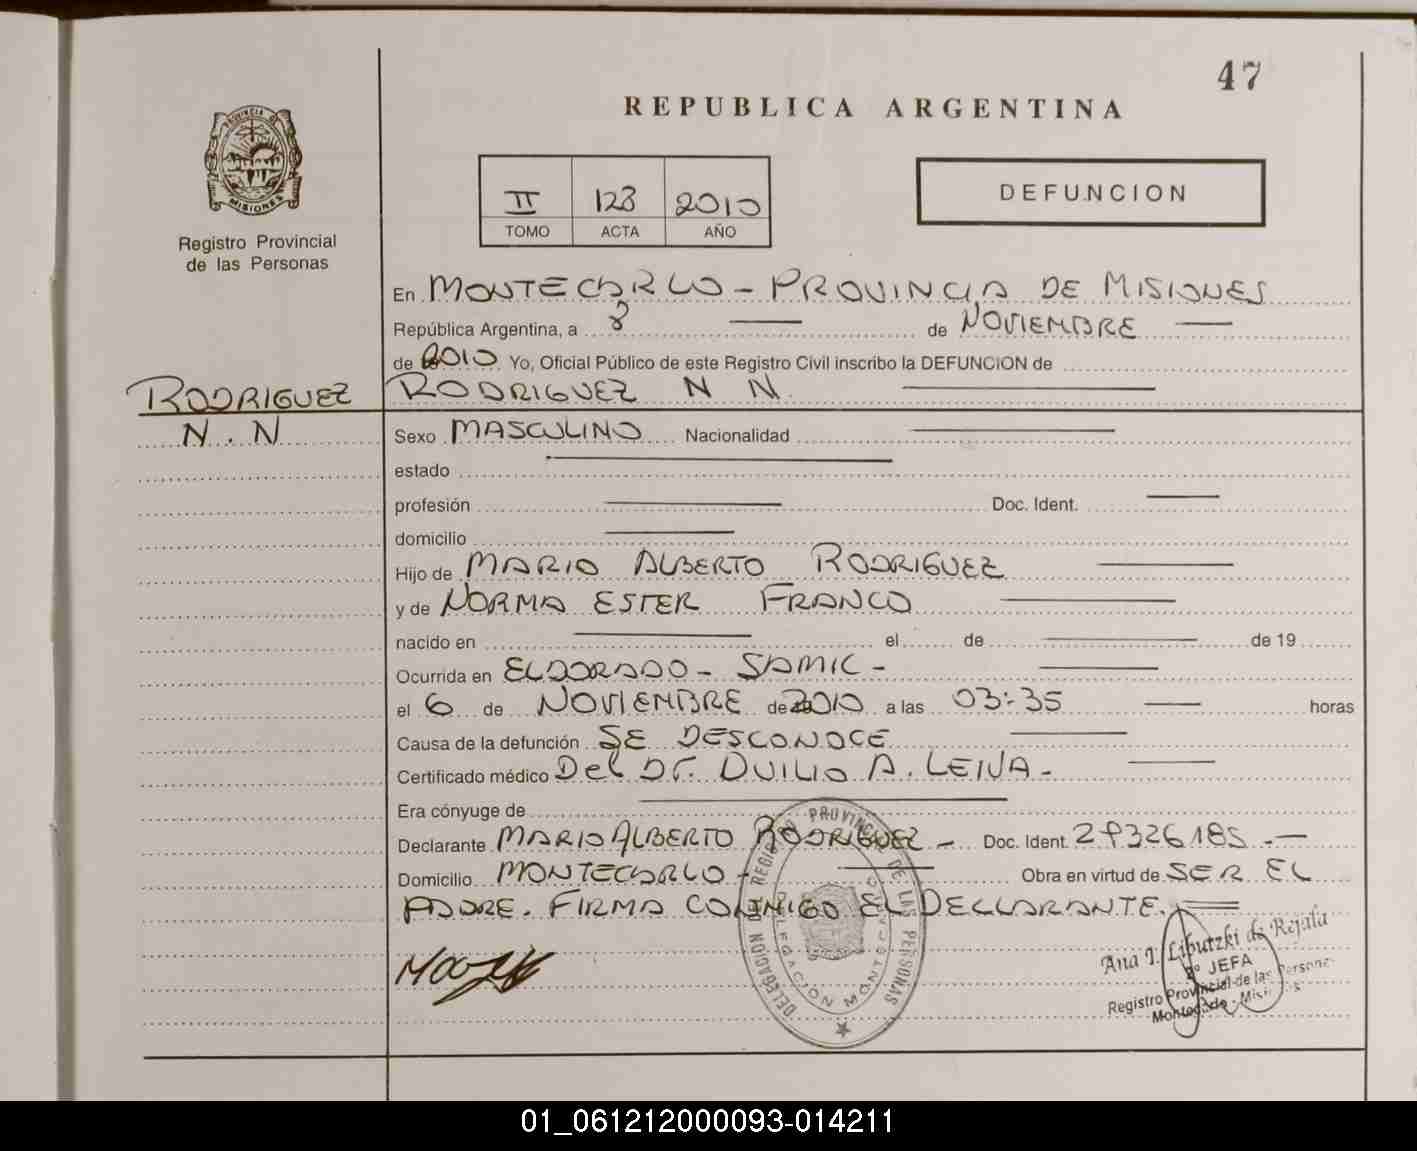 47
REPUBLICA ARGENTINA
PROVINCIA DE
MISIONES
Registro Provincial
de las Personas
II 123 2010
TOMO ACTA AÑO
DEFUNCION
En MONTECARLO - PROVINCIA DE MISIONES
República Argentina, a 8 de NOVIEMBRE
de 2010 Yo, Oficial Público de este Registro Civil inscribo la DEFUNCION de
RODRIGUEZ RODRIGUEZ N N
N . N Sexo MASCULINO Nacionalidad
estado
profesión Doc. Ident.
domicilio
Hijo de MARIO ALBERTO RODRIGUEZ
y de NORMA ESTER FRANCO
nacido en el de de 19
Ocurrida en ELDORADO - SAMIC -
el 6 de NOVIEMBRE de 2010 a las 03:35 horas
Causa de la defunción SE DESCONOCE
Certificado médico Del Dr. DUILIO A. LEIVA -
Era cónyuge de
Declarante MARIO ALBERTO RODRIGUEZ - Doc. Ident. 29326185 . -
Domicilio MONTECARLO - Obra en virtud de SER EL
PADRE. FIRMA CONMIGO EL DECLARANTE.
DELEGACION DEL REGISTRO PROVINCIAL DE LAS PERSONAS
DELEGACION MONTECARLO
Ana I. Libutzki de Rejala
2º JEFA
Registro Provincial de las Personas
Montecarlo - Misiones
01_061212000093-014211